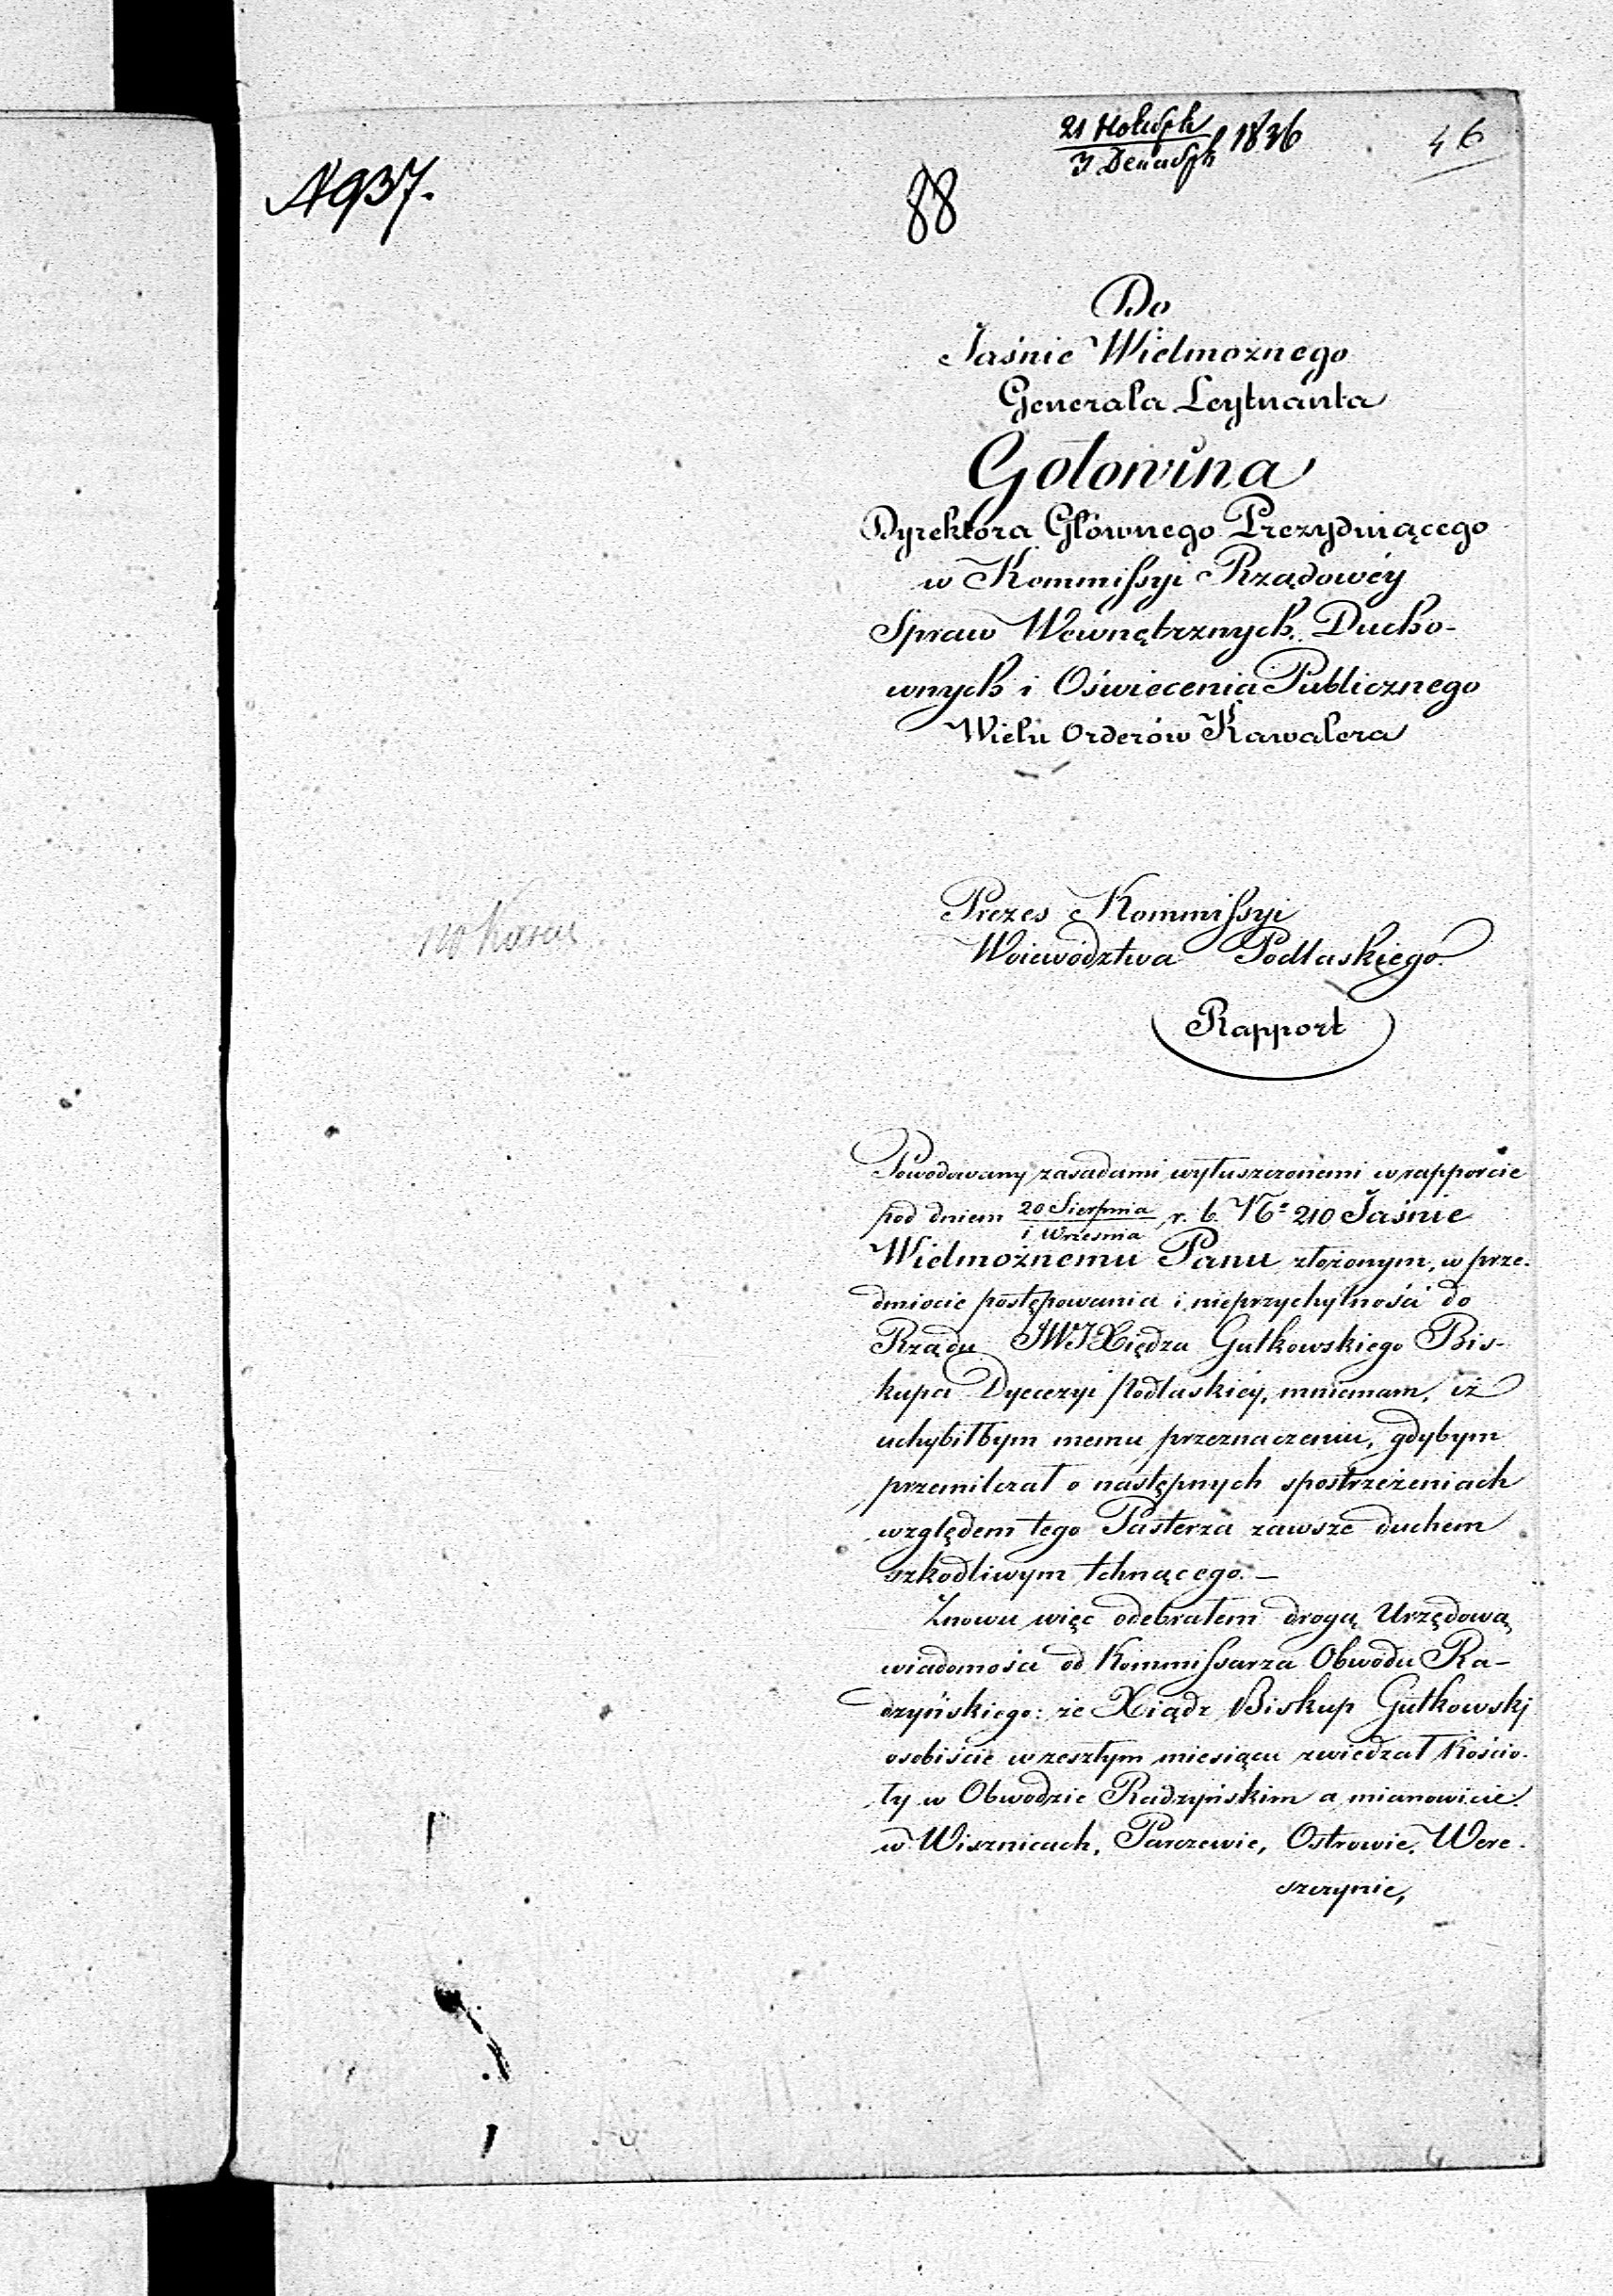 21 Ноября
3 Декабря 1836
46
N 937.
88
Do
Jaśnie Wielmożnego
Generała Leytnanta
Gołowina
Dyrektora Głównego Prezyduiącego
w Kommissyi Rządowéy
Spraw Wewnętrznych Ducho-
wnych i Oświecenia Publicznego
Wielu Orderów Kawalera
Prezes Kommissyi
Woiewództwa Podlaskiego
Rapport
Powodowany zasadami wyłuszczonemi w rapporcie
pod dniem 20 Sierpnia / 1 Września r. b. No 210 Jaśnie
Wielmożnemu Panu złożonym, w prze-
dmiocie postępowania i nieprzychylności do
Rządu JWJXiędza Gutkowskiego Bis-
kupa Dyecezyi Podlaskiéy, mniemam, iż
uchybiłbym memu przeznaczeniu, gdybym
przemilczał o następnych spostrzeżeniach
względem tego Pasterza zawsze duchem
szkodliwym tchnącego. —
Znowu więc odebrałem drogą Urzędową
wiadomość od Kommissarza Obwodu Ra-
dzyńskiego: że Xiądz Biskup Gutkowski
osobiście w zeszłym miesiącu zwiedzał Kościo-
ły w Obwodzie Radzyńskim a mianowicie
w Wisznicach, Parczewie, Ostrowie, Were-
szczynie,